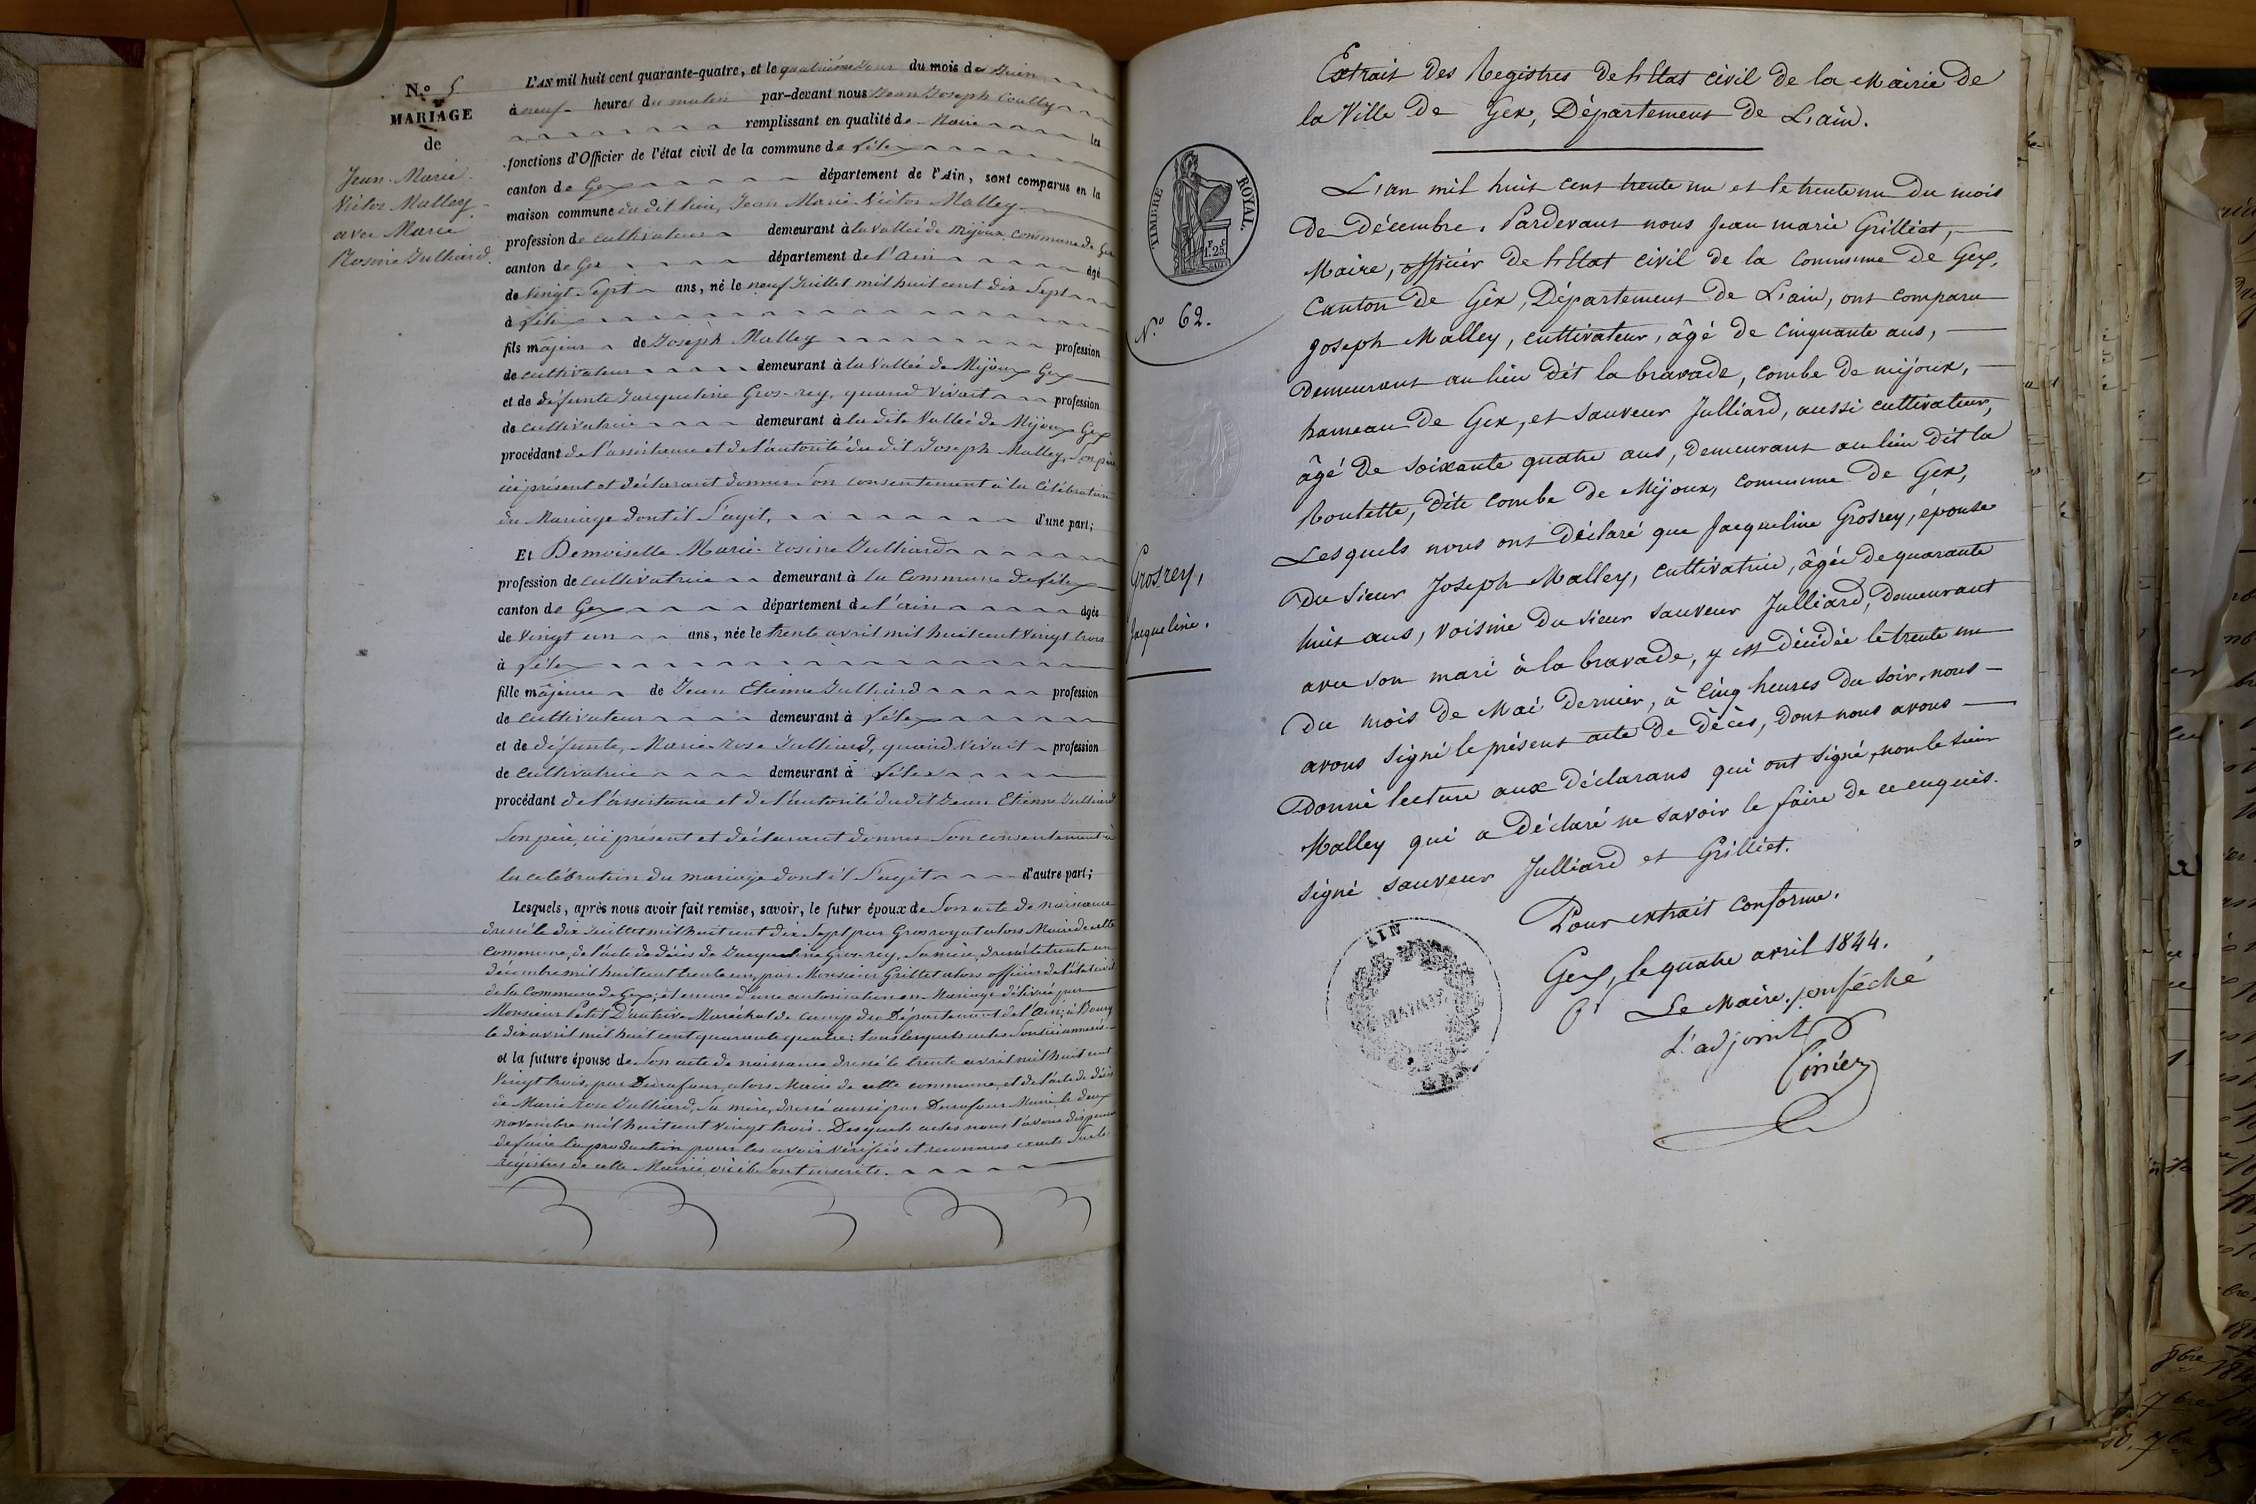 N.o 5
MARIAGE
de
Jean-Marie
Victor Malley
avec Marie
Rosine Julliard.
L'AN mil huit cent quarante-quatre, et le quatrième Jour du mois de Juin
à neuf heures du matin par-devant nous Jean Joseph
remplissant en qualité de Maire les
fonctions d'Officier de l'état civil de la commune de Lélex
canton de Gex département de l'Ain, sont comparus en la
maison commune du dit lieu, Jean Marie Victor Malley
profession de cultivateur demeurant à la vallée de Mijoux commune de Gex
canton de Gex département de l'Ain âgé
de vingt Sept ans, né le neuf Juillet mil huit cent dix Sept
à Lélex
fils majeur de Joseph Malley profession
de cultivateur demeurant à la Vallée de Mijoux Gex
et de défunte Jacqueline Gros-rey, quand vivait profession
de cultivatrice demeurant à la dite Vallée de Mijoux Gex
procédant de l'assistance et de l'autorité du dit Joseph Malley, Son père
ici présent et déclarant donner Son consentement à la célébration
du Mariage dont il S'agit, d'une part;
Et Demoiselle Marie-rosine Julliard
profession de cultivatrice demeurant à la Commune de Lélex
canton de Gex département de l'ain âgée
de vingt un ans, née le trente avril mil huit cent vingt trois
à Lélex
fille majeure de Jean Etienne Julliard profession
de cultivateur demeurant à Lélex
et de défunte, Marie-rose Julliard, quand vivait profession
de cultivatrice demeurant à Lélex
procédant de l'assistance et de l'autorité dudit Jean Etienne Julliard
Son père, ici présent et déclarant donner Son consentement à
la célébration du mariage dont il S'agit d'autre part;
Lesquels, après nous avoir fait remise, savoir, le futur époux de Son acte de naissance
dressé le dix Juillet mil huit cent dix Sept par Grosroyat alors Maire de cette
commune, de l'acte de décès de Jacqueline Gros-rey, Sa mère, dressé le trente un
décembre mil huit cent trente un, par Monsieur Grilliet alors officier de l'état civil
de la Commune de Gex; et encore d'une autorisation en Mariage délivrée par
Monsieur Petit D'autrive Maréchal de camp du Département de l'Ain, à Bourg
le dix avril mil huit cent quarante quatre: tous lesquels actes Sont ici annexés
et la future épouse de Son acte de naissance dressé le trente avril mil huit cent
vingt trois, par Durafour, alors Maire de cette commune, et de l'acte de décès
de Marie rose Julliard, Sa mère, dressé aussi par Durafour Maire, le deux
novembre mil huit cent vingt trois. Desquels actes nous l'avons dispensée
de faire la production pour les avoir vérifiés et reconnus exacts Sur les
régistres de cette Mairie où ils Sont inscrits.
Extrait des Registres de l'Etat civil de la Mairie de
la Ville de Gex, Département de L'ain.
TIMBRE ROYAL
1. 25
N.o 62.
Grosrey,
Jacqueline.
L'an mil huit cent trente un et le trente un du mois
de Décembre. Pardevant nous Jean marie Grilliet,
Maire, officier de l'Etat civil de la Commune de Gex,
Canton de Gex, Département de L'ain, ont comparu
Joseph Malley, cultivateur, âgé de cinquante ans,
Demeurant au lieu dit la bravade, combe de mijoux,
hameau de Gex, et Sauveur Julliard, aussi cultivateur,
âgé de soixante quatre ans, demeurant au lieu dit la
Roulette, dite combe de Mijoux, commune de Gex,
Lesquels nous ont déclaré que Jacqueline Grosrey, épouse
du Sieur Joseph Malley, cultivatrice, âgée de quarante
huit ans, voisine du sieur sauveur Julliard, demeurant
avec son mari à la bravade, y est décédée le trente un
du mois de Mai dernier, à cinq heures du soir, nous
avons signé le présent acte de décès, dont nous avons
donné lecture aux déclarans qui ont signé, non le sieur
Malley qui a déclaré ne savoir le faire de ce enquis.
Signé sauveur Julliard et Grilliet.
Pour extrait conforme.
Gex, le quatre avril 1844.
Pr Le Maire, empêché
L'adjoint
AIN
MAIRIE
GEX